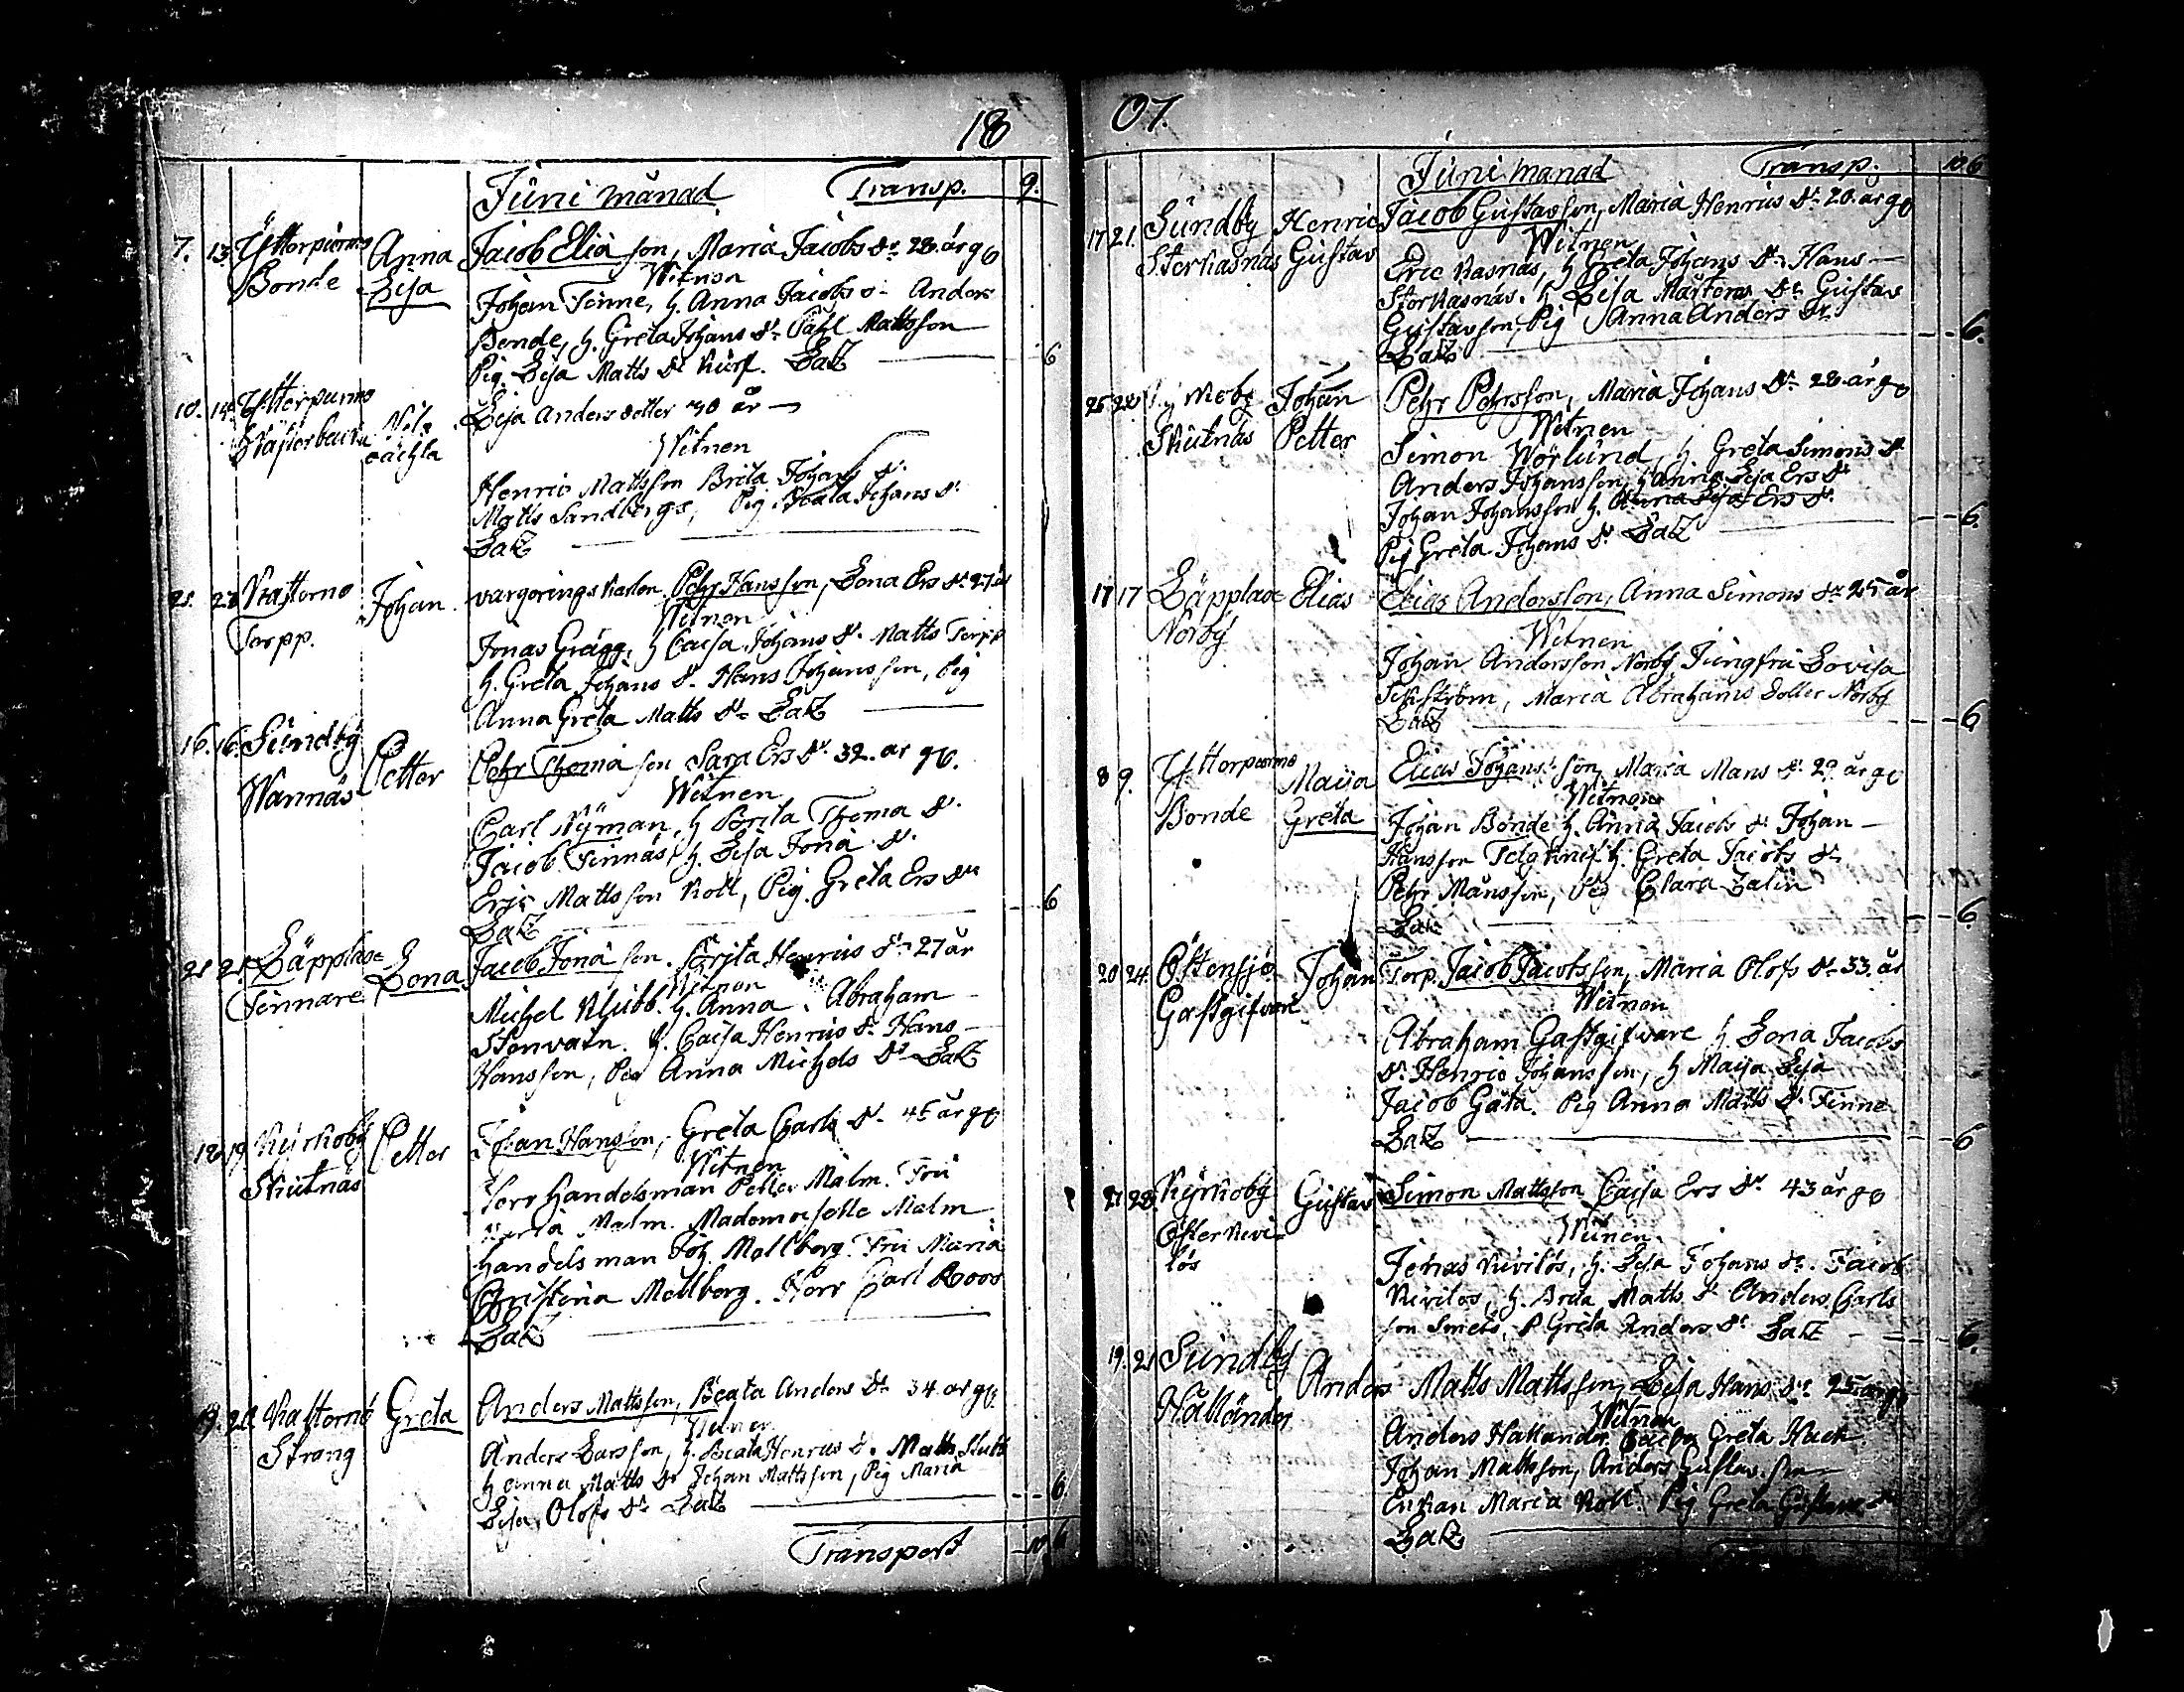 18
Juni månad Transp. 9.
7. 13. Ytterpurmo Anna Jacob Elia son, Maria Jacobs dr 28. år go
Bonde Lisa Witnen
Johan Finne, h. Anna Jacobs dr Anders
Bonde, h. Greta Johans dr Påhl Mattsson
Pig. Lisa Matts dr Kurf. Lax 6
10. 14 Ytterpurmo Lisa Anders dotter 40 år
Näfverbacka oächta Witnen
Henric Mattsson Brita Johans dr
Matts Sandbergs, Pig. Beata Johans dr
Lax
21. 22 Kaftorno Johan vargerings Karlen Pehr Hansson, Lena Ers dr 27 år
Torpp. Witnen
Jonas Grägg, h Caisa Johans dr Matts Torpp
h. Greta Johans dr Hans Johansson, Pig
Anna Greta Matts dr Lax
16. 16. Sundby Petter Pehr Thoma son Sara Ers dr 32. år go.
Hannäs Witnen
Carl Nyman, h Brita Thoma dr
Jacob Finnäs, h. Lisa Jona dr
Eric Mattsson Koll, Pig. Greta Ers dr
Lax 6
21 21 Läpplax Lena Jacob Jona son. Brita Henrics dr 27 år
Finnare Witnen
Michel Klubb. h. Anna. Abraham
Stenvatn. h. Caisa Henrics dr Hans
Hansson, Pig Anna Michels dr Lax
18 19 Kyrkoby Petter Johan Hansson, Greta Carls dr 45 år go
Skutnäs Witnen
Herr Handelsman Petter Malm. Fru
Maria Malm. Mademoiselle Malm
Handelsman Joh. Mellberg. Fru Maria
Christina Mellberg. Herr Carl Roos
Lax
19. 20 Kaftorno Greta Anders Mattsson, Beata Anders dr 34. år go.
Strang Witnen
Anders Larsson, h. Beata Henrics dr Matts Stubb
h Anna Matts dr Johan Mattsson, Pig Maria
Lisa Olofs dr Lax 6
Transport 10. 6
07.
Juni månad Transp. 10. 6
17 21. Sundby Henric Jacob Gustafsson, Maria Henrics dr 20. år go
Storkasnäs Gustav Witnen
Eric Kasnäs, h Greta Johans dr Hans
Storkasnäs. h Lisa Mårtens dr Gustav
Gustavsson, Pig Anna Anders dr
Lax 6.
25 28 Kyrkoby Johan Pehr Pehrsson, Maria Johans dr 28. år go
Skutnäs Petter Witnen
Simon Wörlund, h. Greta Simons dr
Anders Johansson, h Anna Lisa Ers dr
Johan Johansson h. Anna Lisa Ers dr
Pig Greta Johans dr Lax 6.
17 17 Läpplax Elias Elias Andersson, Anna Simons dr 25 år
Norby Witnen
Johan Andersson Norby Jungfru Lovisa
Maria Abrahams dotter Norby
Lax 6
8 9. Ytterpurmo Maija Elias Johans son Maria Mans dr 29. år go
Bonde Greta Witnen
Johan Bonde h. Anna Jacobs dr Johan
Hansson h. Greta Jacobs dr
Pehr Månsson, Pig Clara Zalin
Lax 6.
20 24. Östensjö Johan Torp. Jacob Jacobsson, Maria Olofs dr 33. år
Gästgifvare Witnen
Abraham Gästgifware h. Lena Jacobs
dr Henric Johansson, h Maija Lisa
Jacob Gäta. Pig Anna Matts dr Finne
Lax 6
21 28. Kyrkoby Gustav Simon Mattsson Caisa Ers dr 43 år go
Öster Kivi- Witnen
lös Jonas Kivilös, h. Lisa Johans dr. Jacob
Kivilös, h. Brita Matts dr Anders Carls
son Smeds, P Greta Anders dr Lax 6.
19. 21 Sundby Anders Matts Mattsson, Lisa Hans dr 25 år go
Hallander Witnen
Anders Hallander Caisa Greta
Johan Mattsson, Anders Gustavsson
Enkan Maria Koll Pig Greta Gustavs dr
Lax